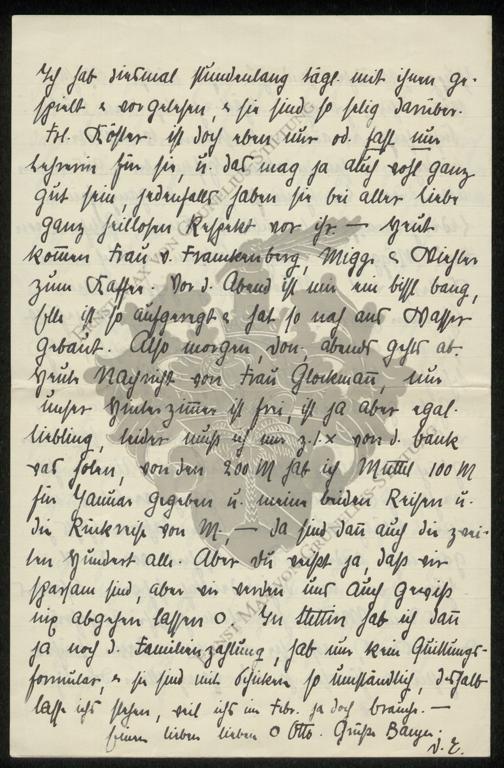 Ich hab diesmal stundenlang tägl. mit ihnen ge-
spielt & vorgelesen, & sie sind so selig darüber.
Frl. Köster ist doch eben nur od. fast nur
Lehrerin für sie, u. das mag ja auch wohl ganz
gut sein, jedenfalls haben sie bei aller Liebe
ganz heillosen Respekt vor ihr. — Heut
kommen Frau v. Franckenberg, Miggi &
zum Kaffee. Vor d. Abend ist mir ein bissl bang,
Elle ist so aufgeregt & hat so nah ans Wasser
gebaut. Also morgen, don. abends gehts ab.
Heute Nachricht von Frau Glockmann, nur
unser Hinterzimmer ist frei, ist ja aber egal.
Liebling, leider muß ich mir z. 1.x von d. Bank
was holen, von den 200 M hab ich Muttel 100 M
für Januar gegeben u. meine beiden Reisen u.
die Rückreise von M, — da sind dann auch die zwei-
ten Hundert alle. Aber Du weißt ja, daß wir
sparsam sind, aber wir werden uns auch gewiß
nix abgehen lassen O. In Stettin hab ich dann
ja noch d. Familienzahlung, hab nur kein Quittungs-
formular, & sie sind mit Schicken so umständlich, deshalb
lasse ichs stehen, weil ichs im Febr. ja doch brauche. —
lieben lieben O Otto. Grüße
D. E.
ERNST MAX VON GRUNELIUS-STIFTUNG
ERNST MAX VON GRUNELIUS-STIFTUNG